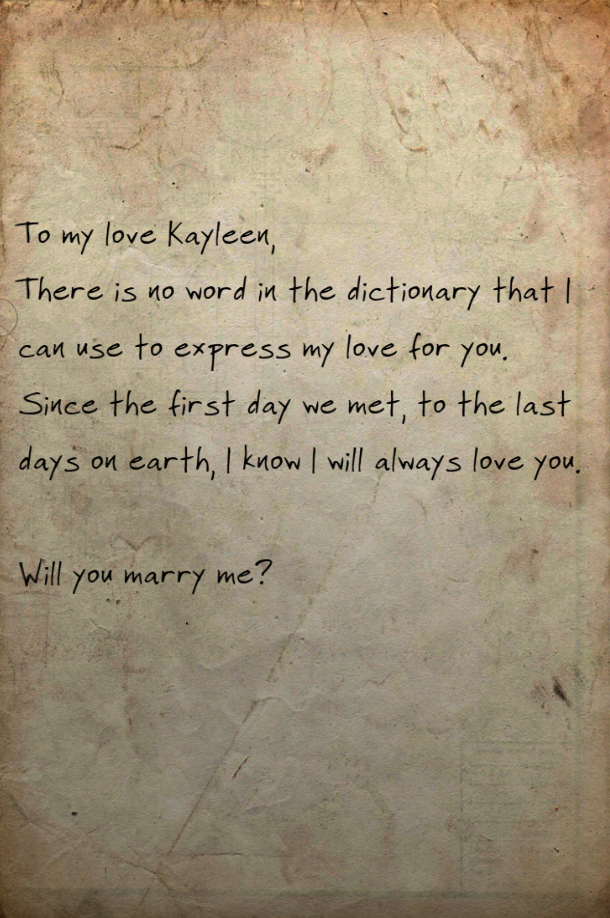 To my love Kayleen,
There is no word in the dictionary that I
can use to express my love for you.
Since the first day we met, to the last
days on earth, I know I will always love you.
Will you marry me?